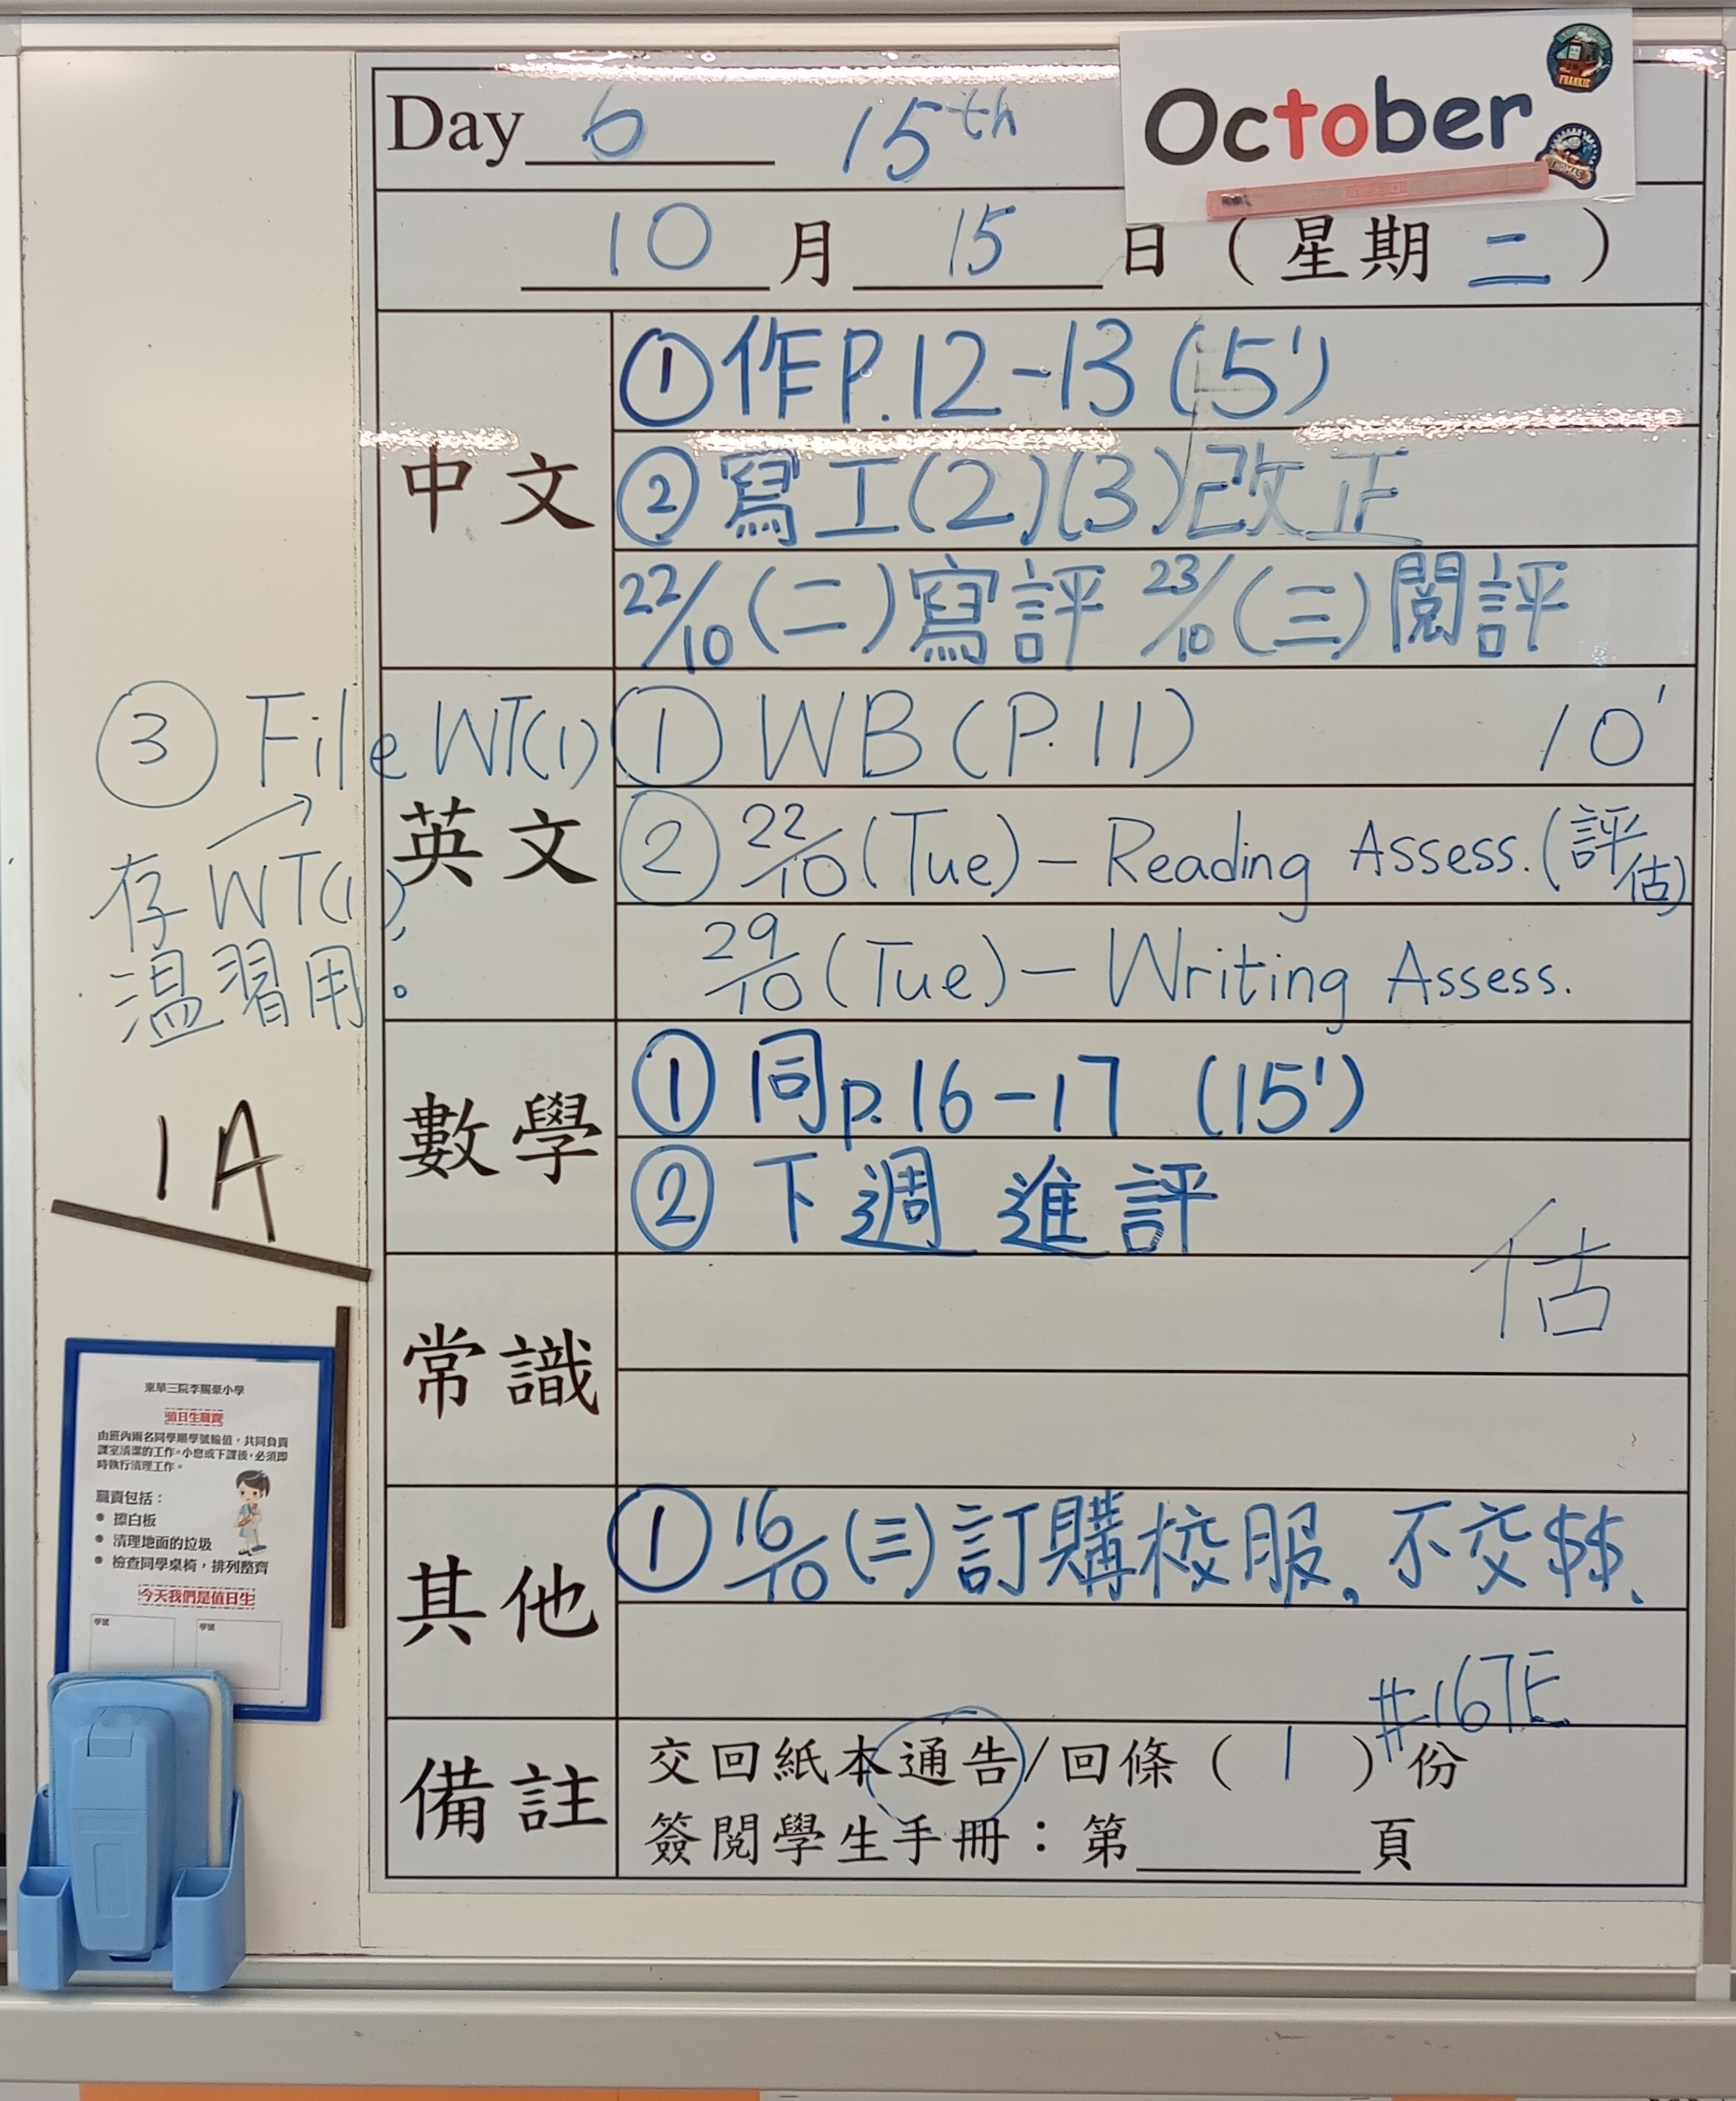 October
Day 6 15th
10 月 15 日 ( 星期 二 )
中文
① 作P.12-13 (5')
② 寫工(2)(3)改正
22/10 (二) 寫評 23/10 (三) 閱評
英文
① WB (P.11) 10'
② 22/10 (Tue) - Reading Assess. (評估)
29/10 (Tue) - Writing Assess.
③ File WT(1)
存 WT(1),
溫習用。
數學
① 同p.16-17 (15')
② 下週 進評
估
常識
其他
① 16/10 (三) 訂購校服, 不交$$、
#167E
備註
交回紙本通告/回條 ( 1 ) 份
簽閱學生手冊:第 頁
1A
值日生職責
由班內兩名同學順學號輪值,共同負責
課室清潔的工作。小息或下課後,必須即
時執行清理工作。
職責包括:
● 擦白板
● 清理地面的垃圾
● 檢查同學桌椅,排列整齊
今天我們是值日生
學號 學號